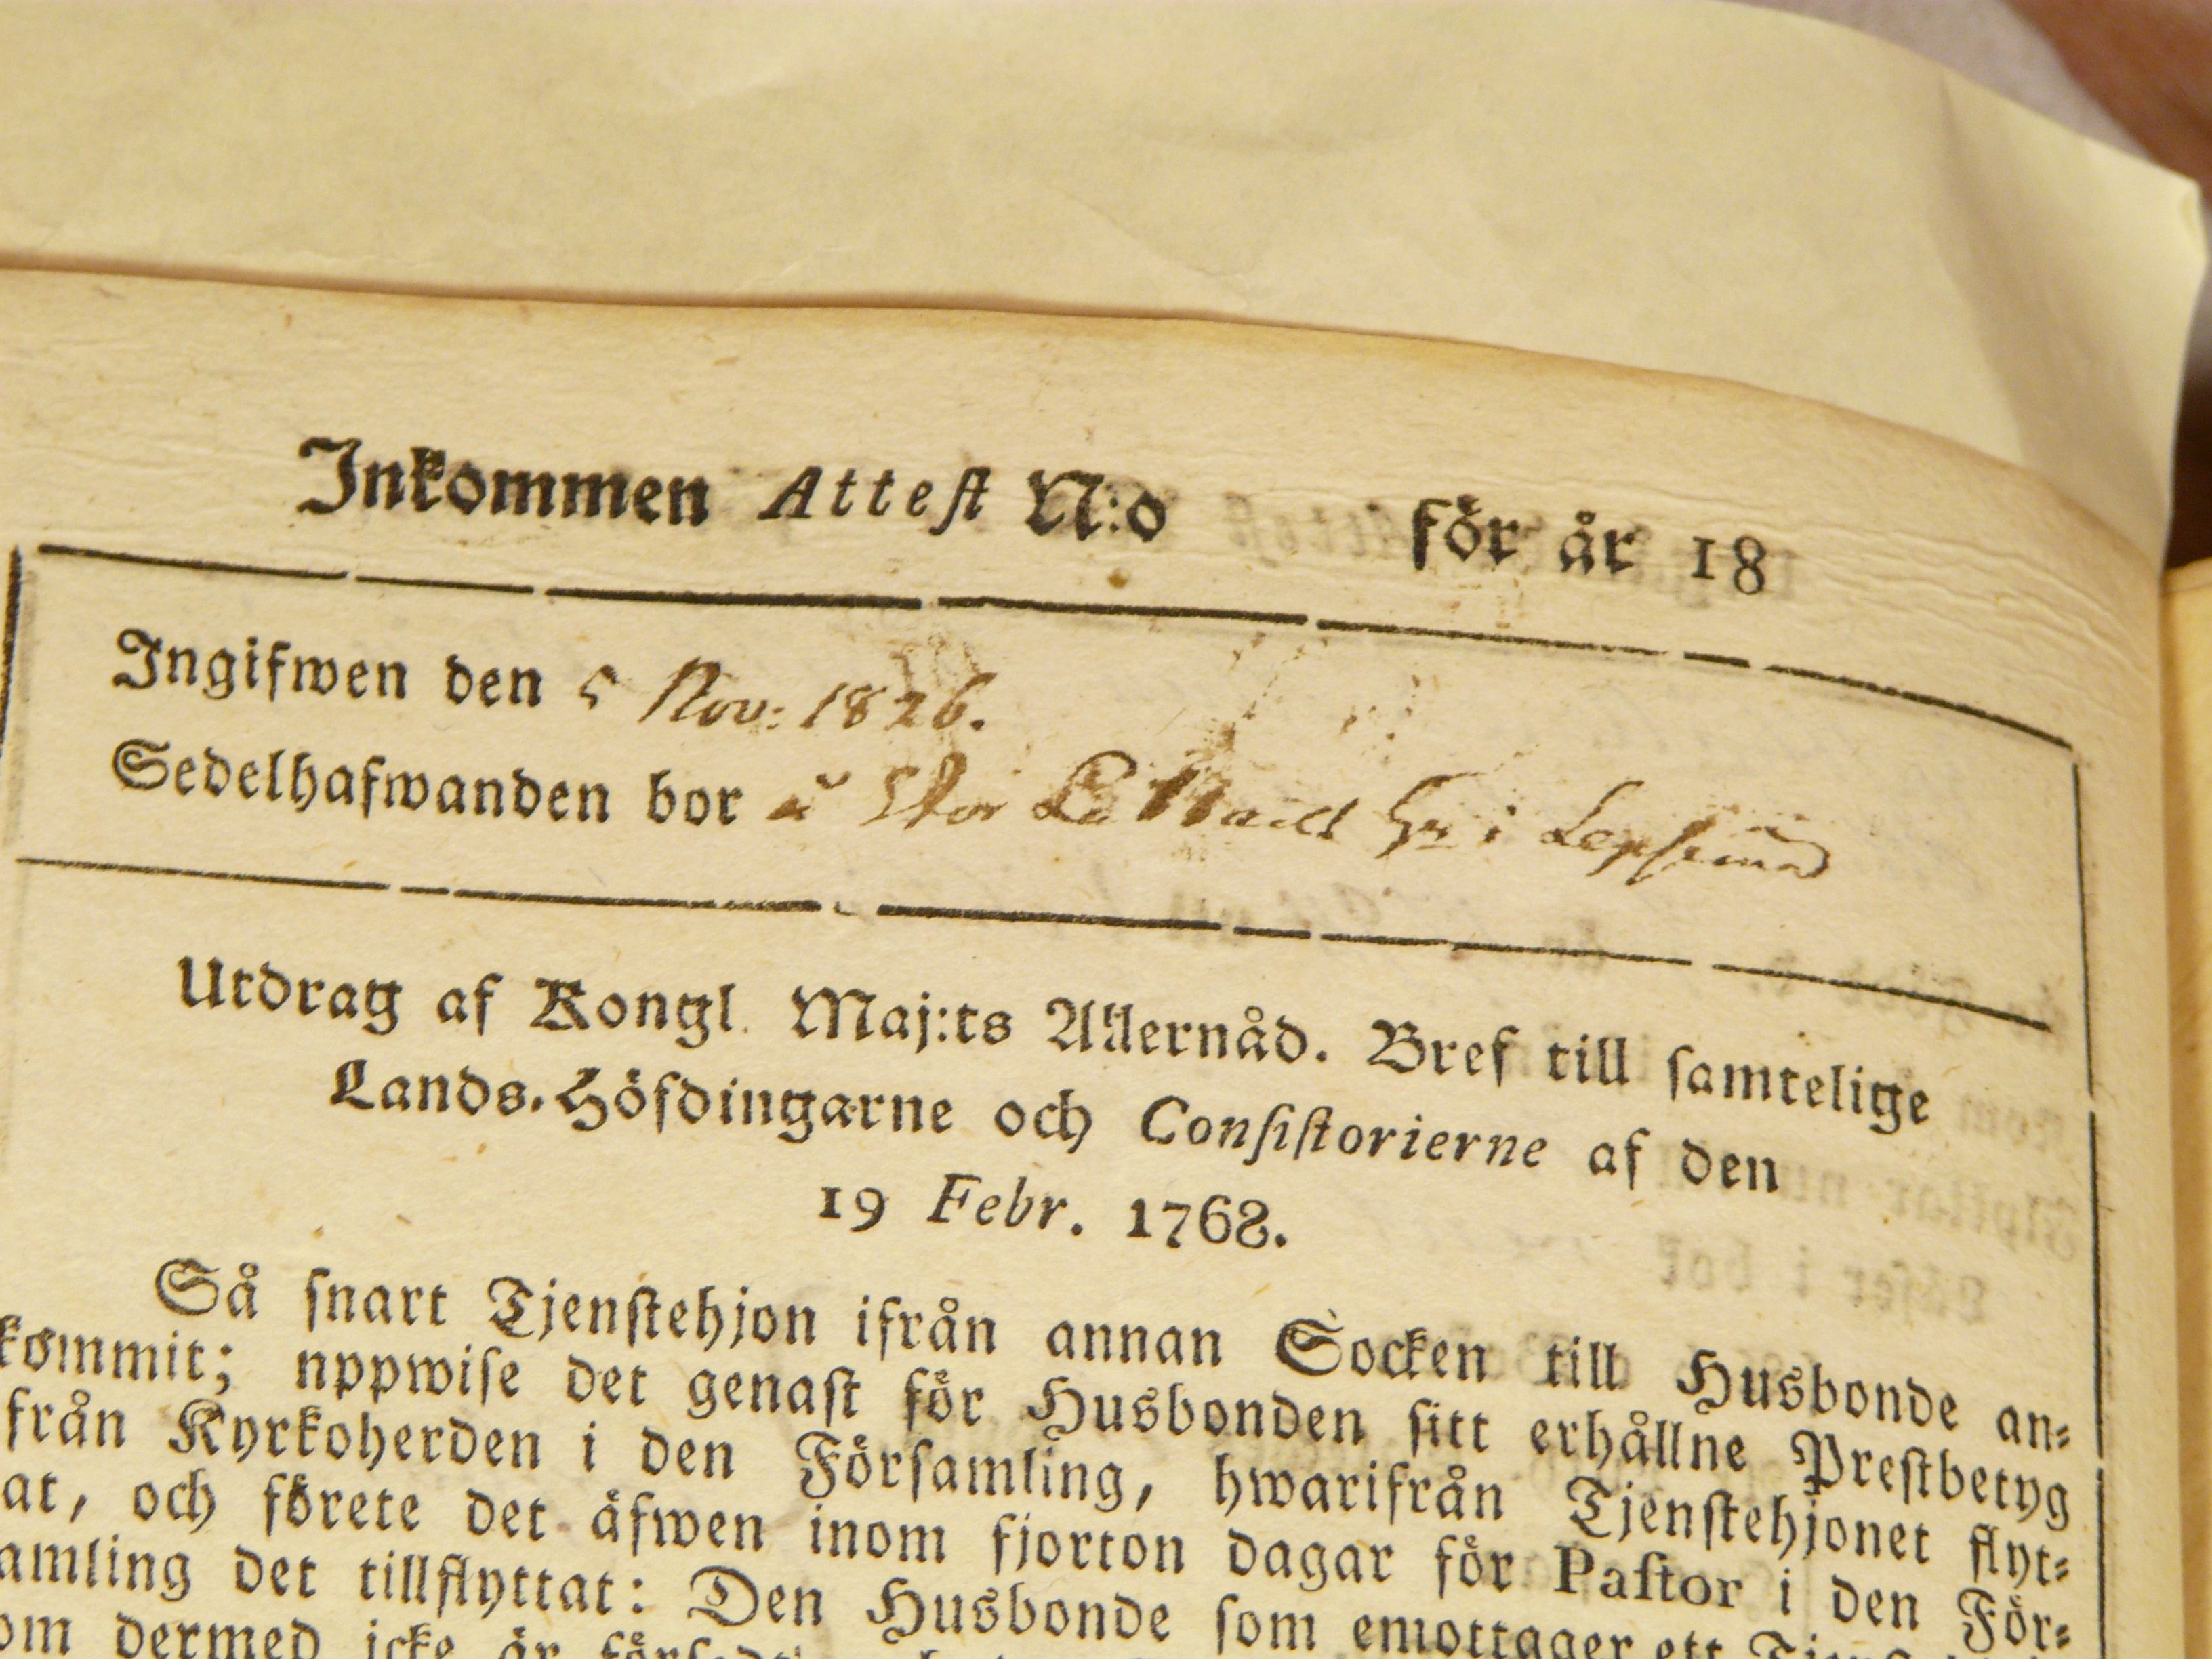 Inkommen Attest N:o för år 18
Ingifwen den 5 Nov: 1826.
Sedelhafwanden bor å Stor i
Utdrag af Kongl. Maj:ts Allernåd. Bref till samtelige
Lands-Höfdingarne och Consistorierne af den
19 Febr. 1768.
Så snart Tjenstehjon ifrån annan Socken till Husbonde an-
kommit; nppwise det genast för Husbonden sitt erhållne Prestbetyg
från Kyrkoherden i den Församling, hwarifrån Tjenstehjonet flyt-
at, och förete det äfwen inom fjorton dagar för Pastor i den För-
amling det tillflyttat: Den Husbonde som emottager ett
om dermed icke är